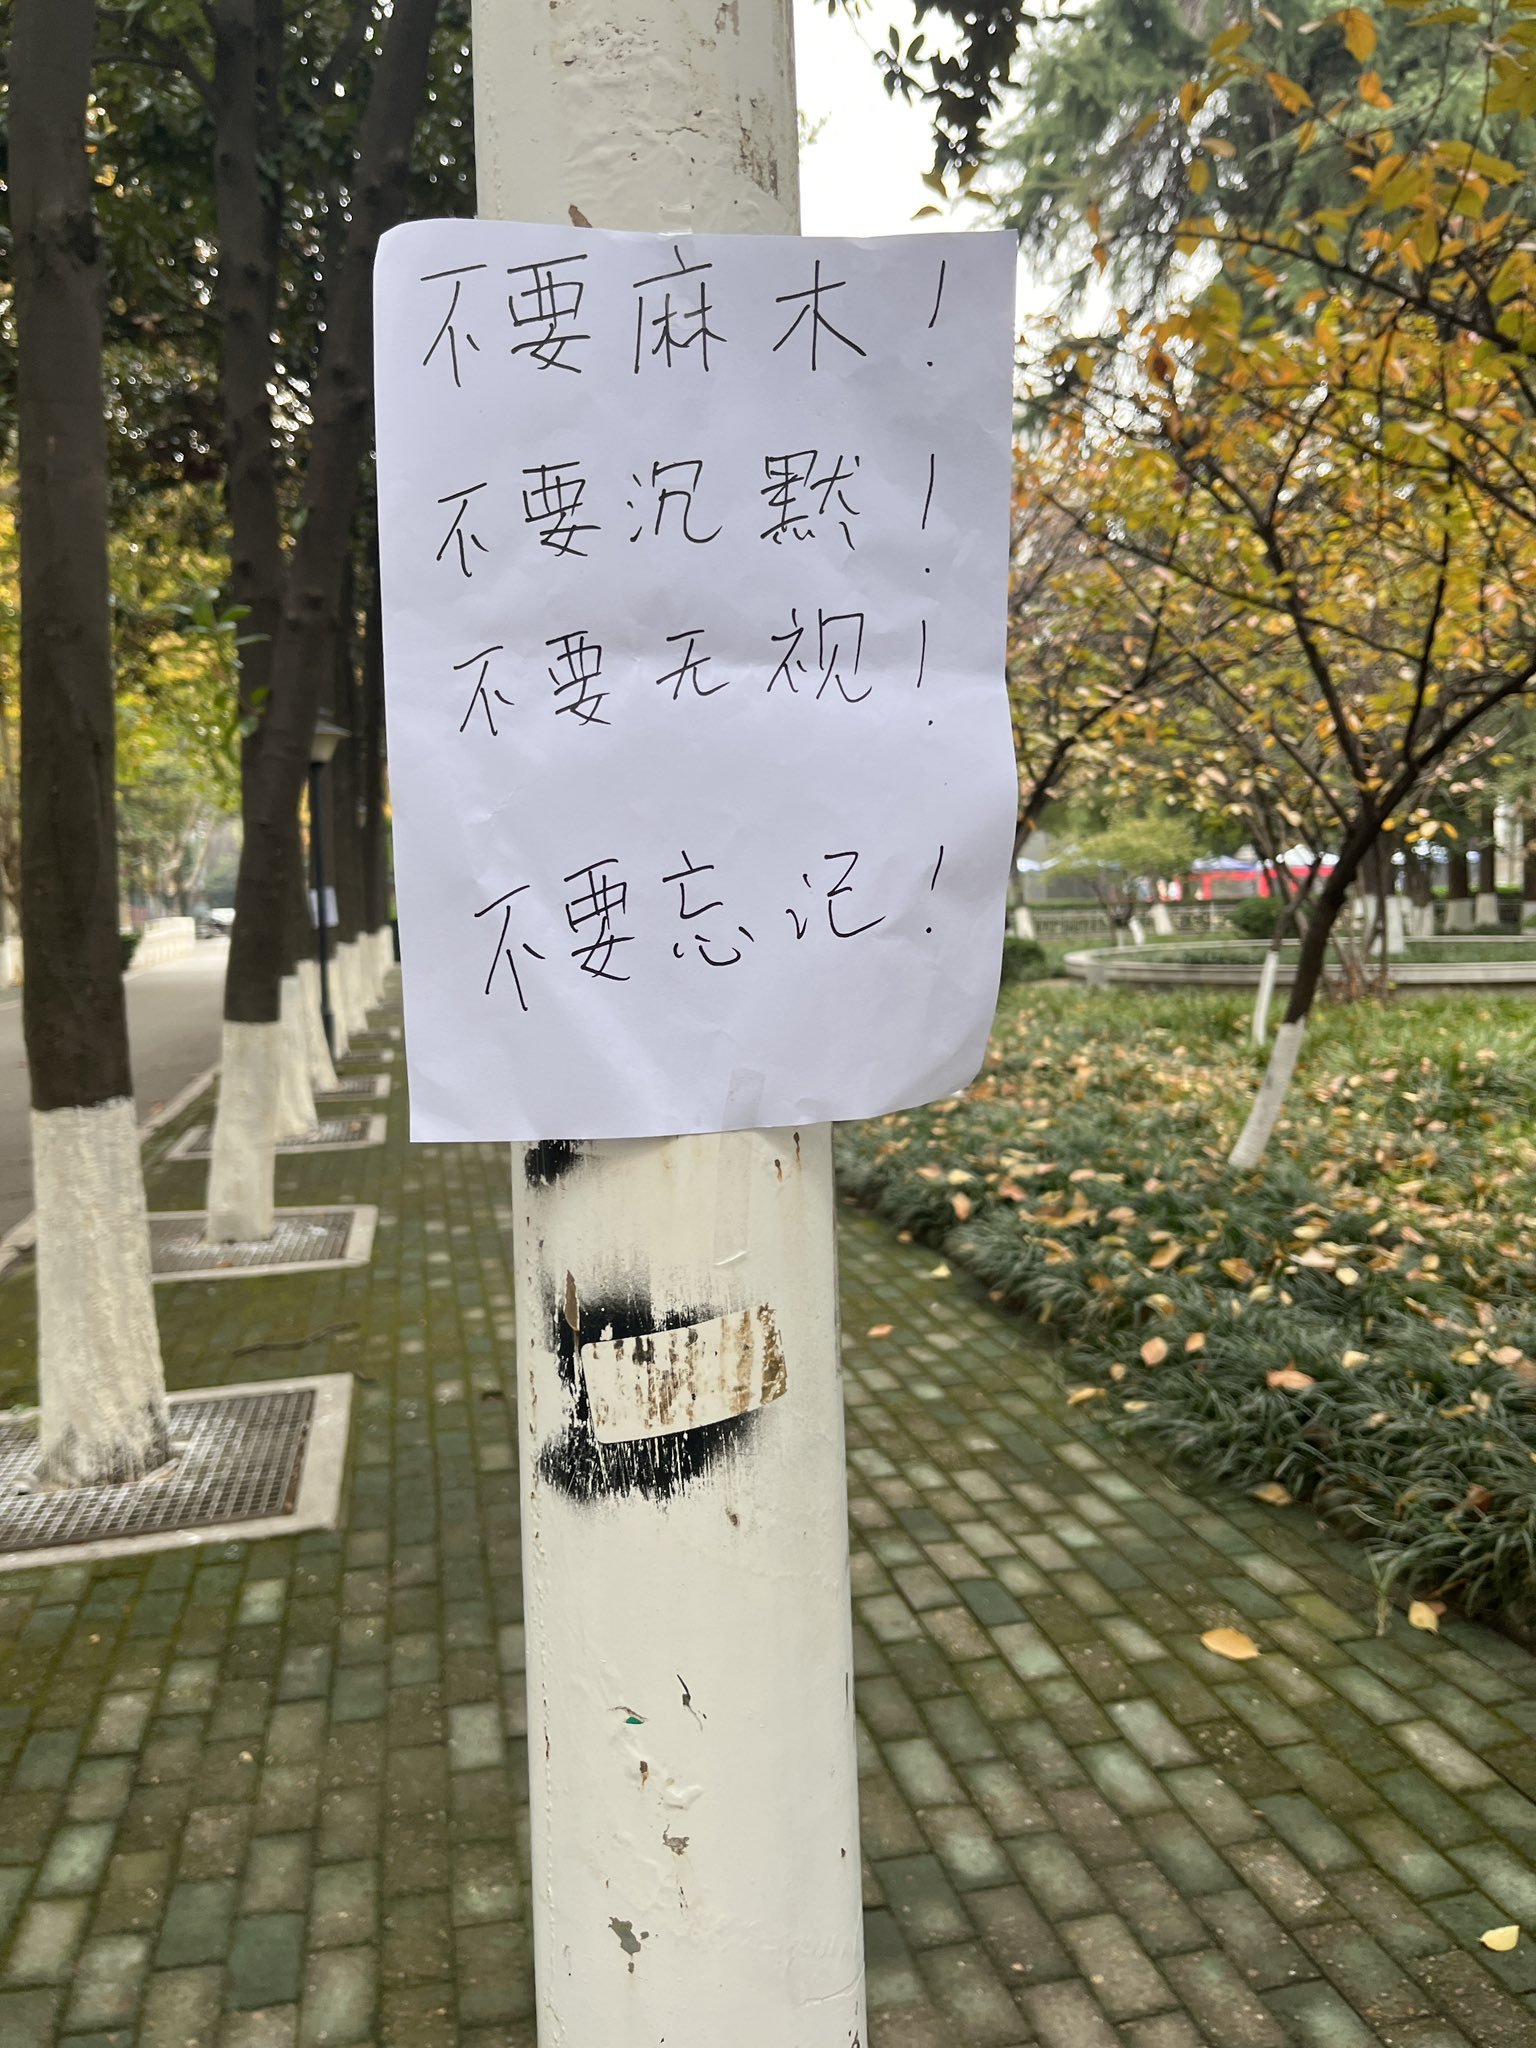 不要麻木!
不要沉默!
不要无视!
不要忘记!